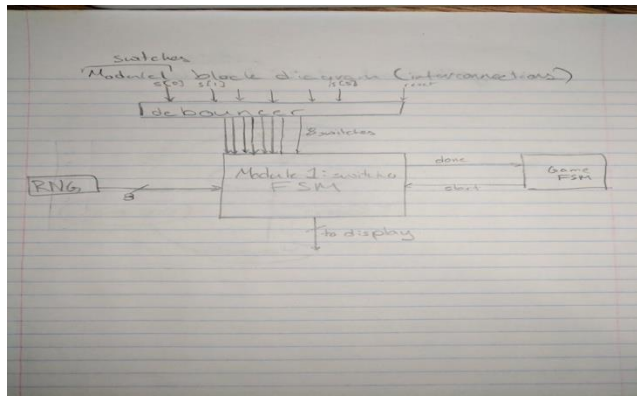 switches
Module 1 block diagram (interconnections)
s[0] s[1]
debouncer
8 switches
RNG
8
Module 1: switches
FSM
done
start
Game
FSM
to display